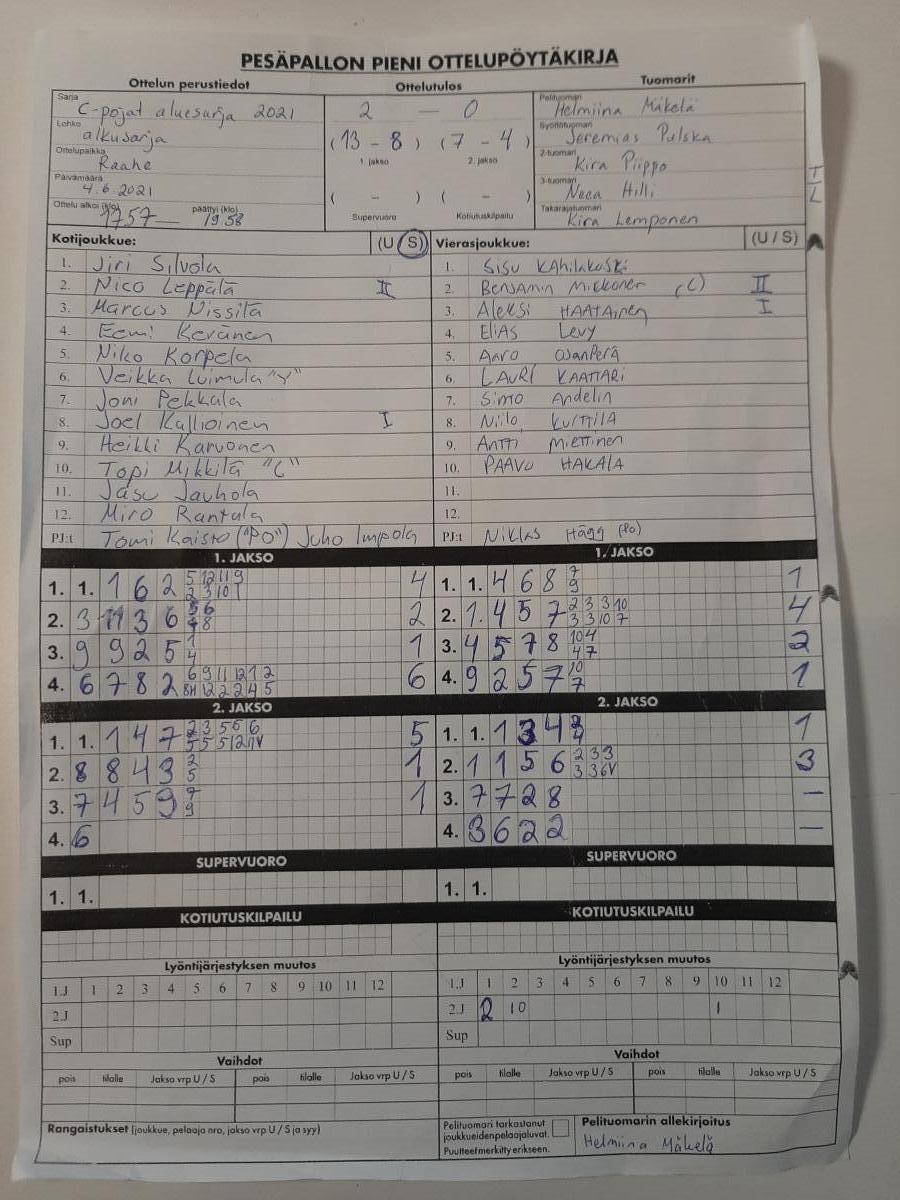 PESÄPALLON PIENI OTTELUPÖYTÄKIRJA
Ottelun perustiedot Ottelutulos Tuomarit
Sarja C-pojat aluesarja 2021
Lohko alkusarja
Ottelupaikka Raahe
Päivämäärä 4.6.2021
Ottelu alkoi (klo) 1757 päättyi (klo) 19.58
2 — 0
(13 - 8) (7 - 4)
1. jakso 2. jakso
( - ) ( - )
Supervuoro Kotiutuskilpailu
Pelituomari Helmiina Mäkelä
Syöttötuomari Jeremias Pulska
2-tuomari Kira Piippo
3-tuomari Neea Hilli
Takarajatuomari Kira Lemponen
Kotijoukkue: (U / S)
1. Jiri Silvola
2. Nico Leppälä II
3. Marcus Nissilä
4. Eemi Keränen
5. Niko Korpela
6. Veikka Luimula "V"
7. Joni Pekkala
8. Joel Kallioinen I
9. Heikki Karvonen
10. Topi Mikkilä "C"
11. Jasu Jauhola
12. Miro Rantala
PJ:t Tomi Kaisto ("PO") Juho Impola
Vierasjoukkue: (U / S)
1. Sisu KAhilakoski
2. Benjamin Mickonen (C) II
3. Aleksi HAATAinen I
4. EliAs Levy
5. Aaro OjanPerä
6. LAURI KAATTARi
7. Simo Andelin
8. Niilo KURTTILA
9. Antti Miettinen
10. PAAVO HAKALA
11.
12.
PJ:t Niklas Hägg (Po)
1. JAKSO
1. 1. 1 6 2 5 12 11 9 4
2 3 10 1
2. 3 11 3 6 5 6 2
8
3. 9 9 2 5 1 1
4
4. 6 7 8 2 6 9 11 12 1 2 6
8H 12 2 2 4 5
1. JAKSO
1. 1. 4 6 8 7 1
9
2. 1. 4 5 7 2 3 3 10 4
3 3 10 7
3. 4 5 7 8 10 4 2
4 7
4. 9 2 5 7 10 1
7
2. JAKSO
1. 1. 1 4 7 2 3 5 5 6 6 5
5 5 5 12 11V
2. 8 8 4 3 2 1
5
3. 7 4 5 9 7 1
9
4. 6
2. JAKSO
1. 1. 1 3 4 3 1
4
2. 1 1 5 6 2 3 3 3
3 3 6V
3. 7 7 2 8 —
4. 3 6 2 2 —
SUPERVUORO
1. 1.
SUPERVUORO
1. 1.
KOTIUTUSKILPAILU
KOTIUTUSKILPAILU
Lyöntijärjestyksen muutos
1.J 1 2 3 4 5 6 7 8 9 10 11 12
2.J
Sup
Lyöntijärjestyksen muutos
1.J 1 2 3 4 5 6 7 8 9 10 11 12
2.J 2 10 1
Sup
Vaihdot
pois tilalle Jakso vrp U / S pois tilalle Jakso vrp U / S
Vaihdot
pois tilalle Jakso vrp U / S pois tilalle Jakso vrp U / S
Rangaistukset (joukkue, pelaaja nro, jakso vrp U / S ja syy)
Pelituomari tarkastanut
joukkueiden pelaajaluvat.
Puutteet merkitty erikseen.
Pelituomarin allekirjoitus
Helmiina Mäkelä